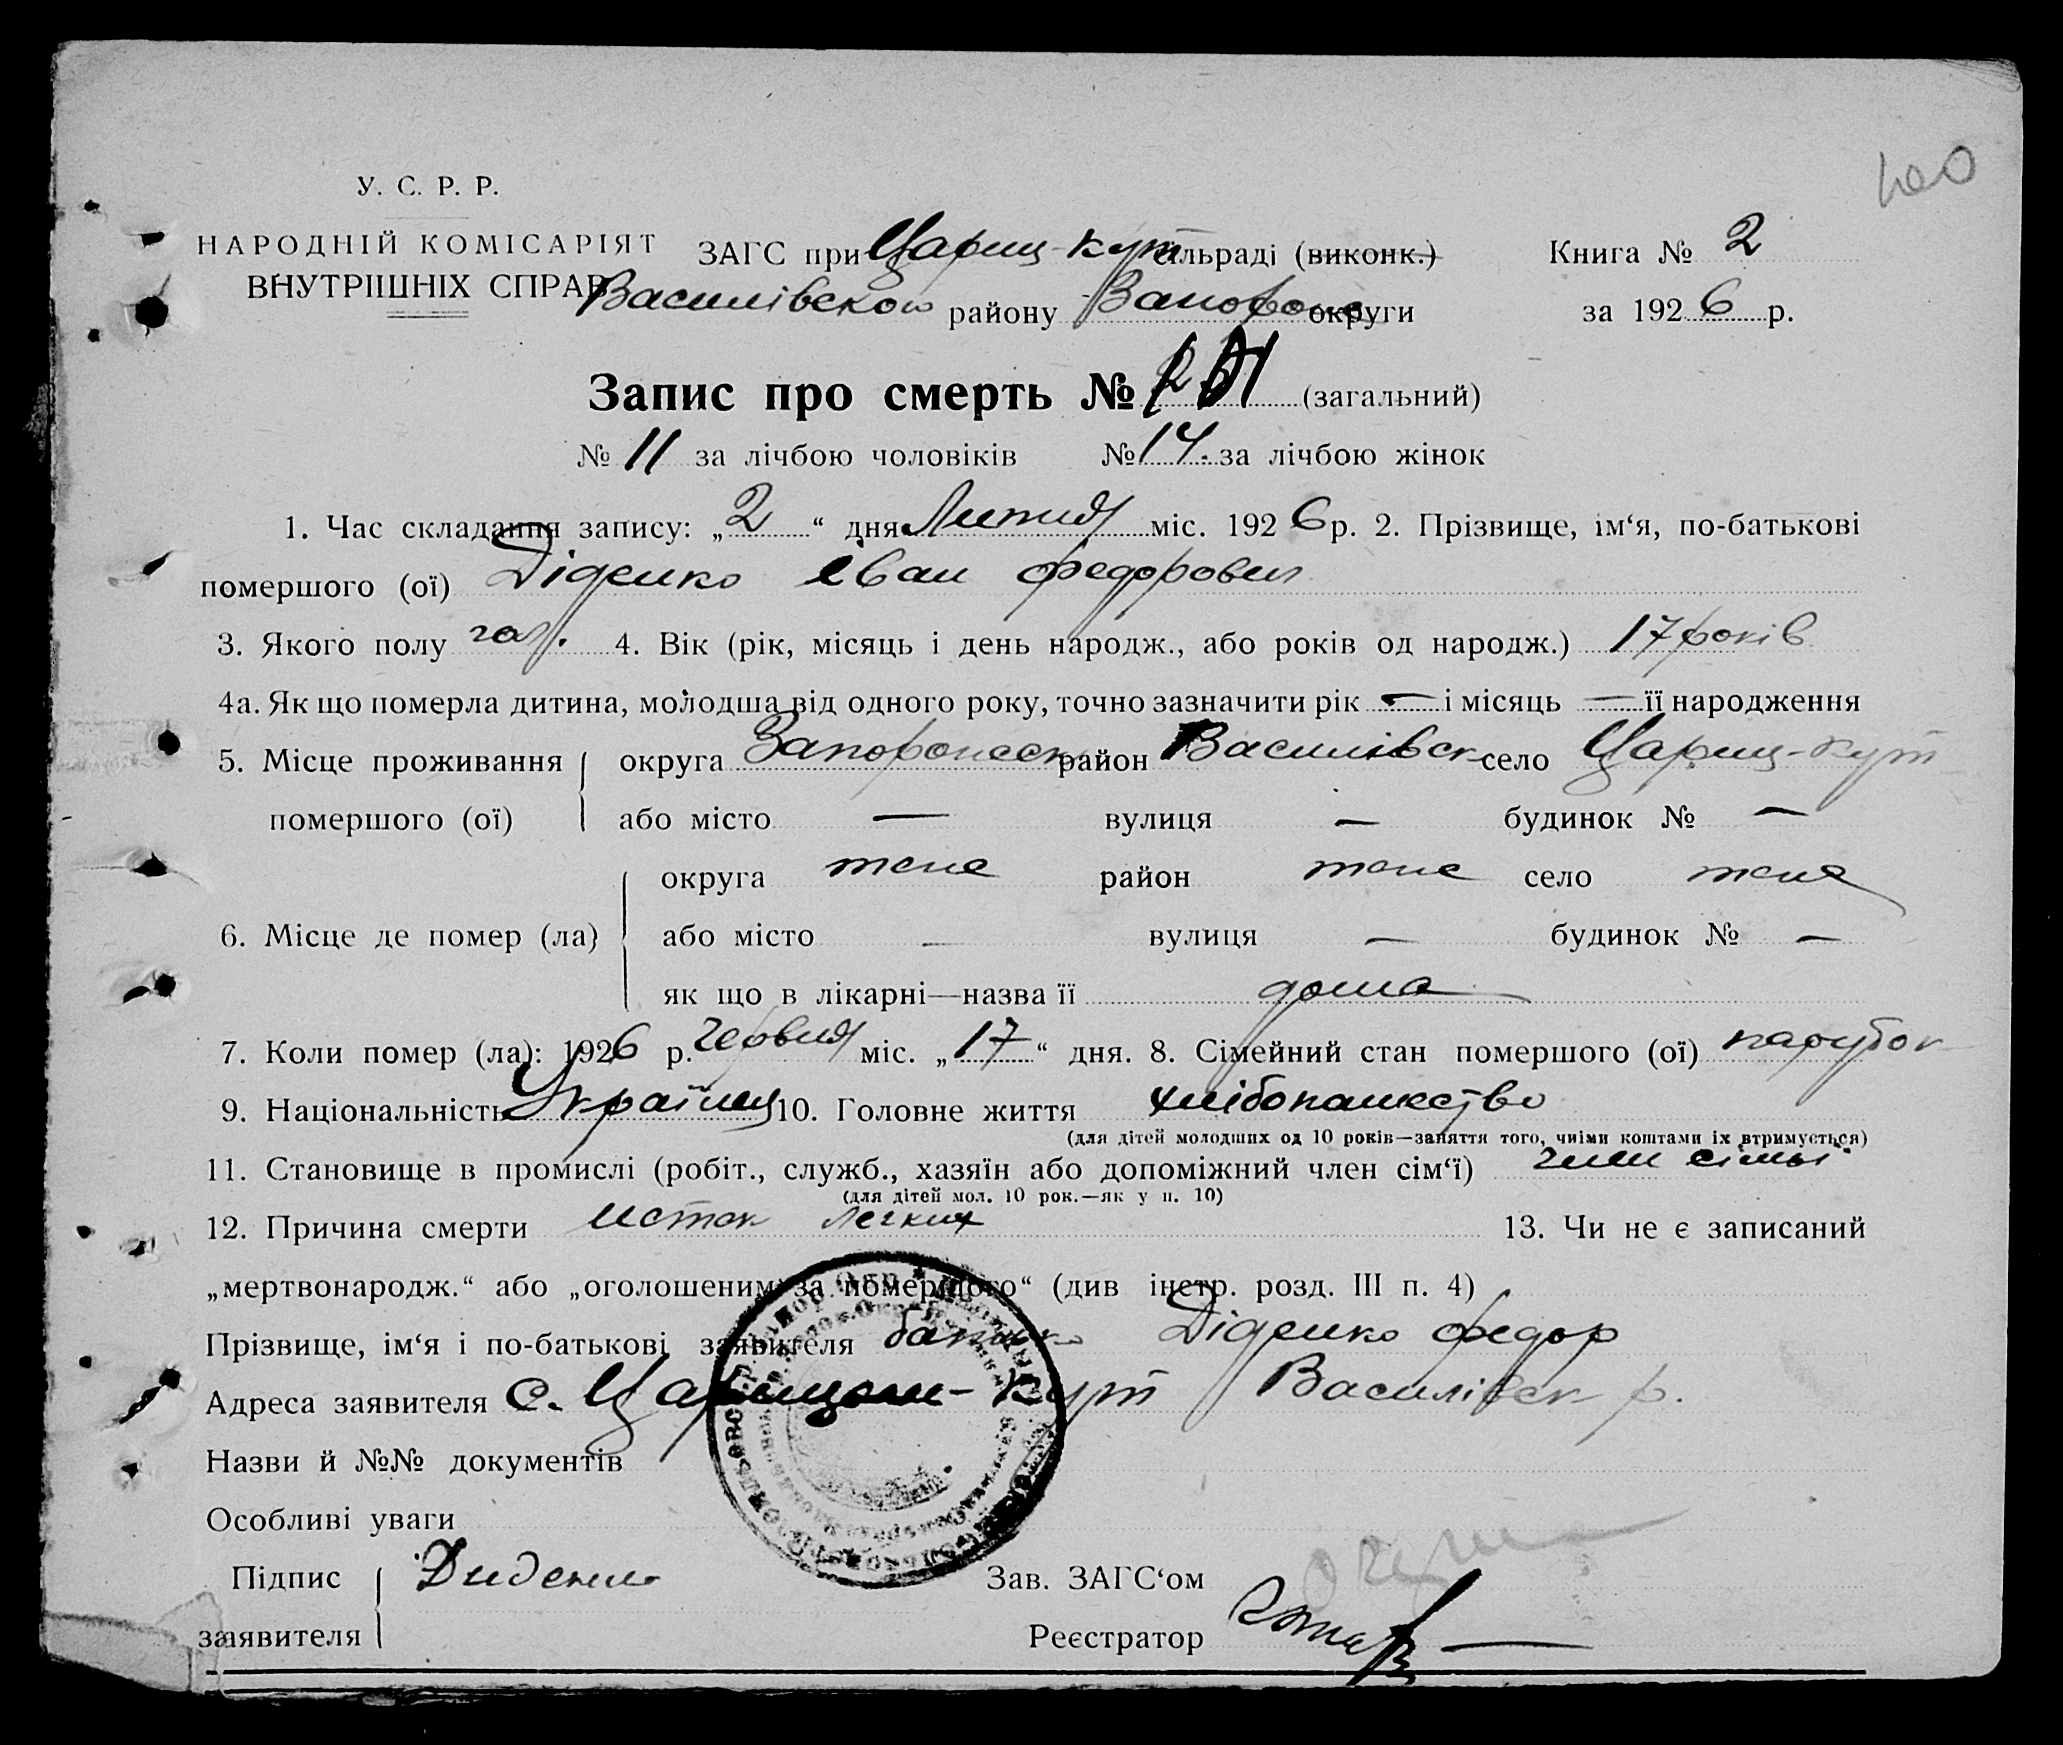 У. С. Р. Р.
НАРОДНІЙ КОМІСАРІЯТ
ВНУТРІШНІХ СПРАВ
ЗАГС при Цариц-Кут сільраді (виконк.)
Василівского району Запорож округи
Книга № 2
за 1926 р.
Запис про смерть № (загальний)
№ 11 за лічбою чоловіків № 14. за лічбою жінок
1. Час складання запису: „2“ дня Липня міс. 1926 р. 2. Прізвище, ім‘я, по-батькові
помершого (ої) Діденко Іван Федорович
3. Якого полу чол. 4. Вік (рік, місяць і день народж., або років од народж.) 17 років
4а. Як що померла дитина, молодша від одного року, точно зазначити рік — і місяць — її народження
5. Місце проживання округа Запорожеск район Василівск село Цариц-Кут
помершого (ої) або місто — вулиця — будинок № —
округа теж район теж село теж
6. Місце де помер (ла) або місто — вулиця — будинок № —
як що в лікарні—назва її дома
7. Коли помер (ла): 1926 р. Червня міс. „17“ дня. 8. Сімейний стан помершого (ої) парубок
9. Національність Українец 10. Головне життя хлібопашество
(для дітей молодших од 10 років—заняття того, чиїми коштами їх втримується)
11. Становище в промислі (робіт., служб., хазяїн або допоміжний член сім‘ї) член сімьї
(для дітей мол. 10 рок.—як у п. 10)
12. Причина смерти легких 13. Чи не є записаний
„мертвонародж.“ або „оголошеним за помершого“ (див інстр. розд. III п. 4)
Прізвище, ім‘я і по-батькові заявителя батько Діденко Федор
Адреса заявителя с. Царицын-Кут Василівск р.
Назви й №№ документів
Особливі уваги
Підпис Диденко Зав. ЗАГС‘ом
заявителя Реєстратор